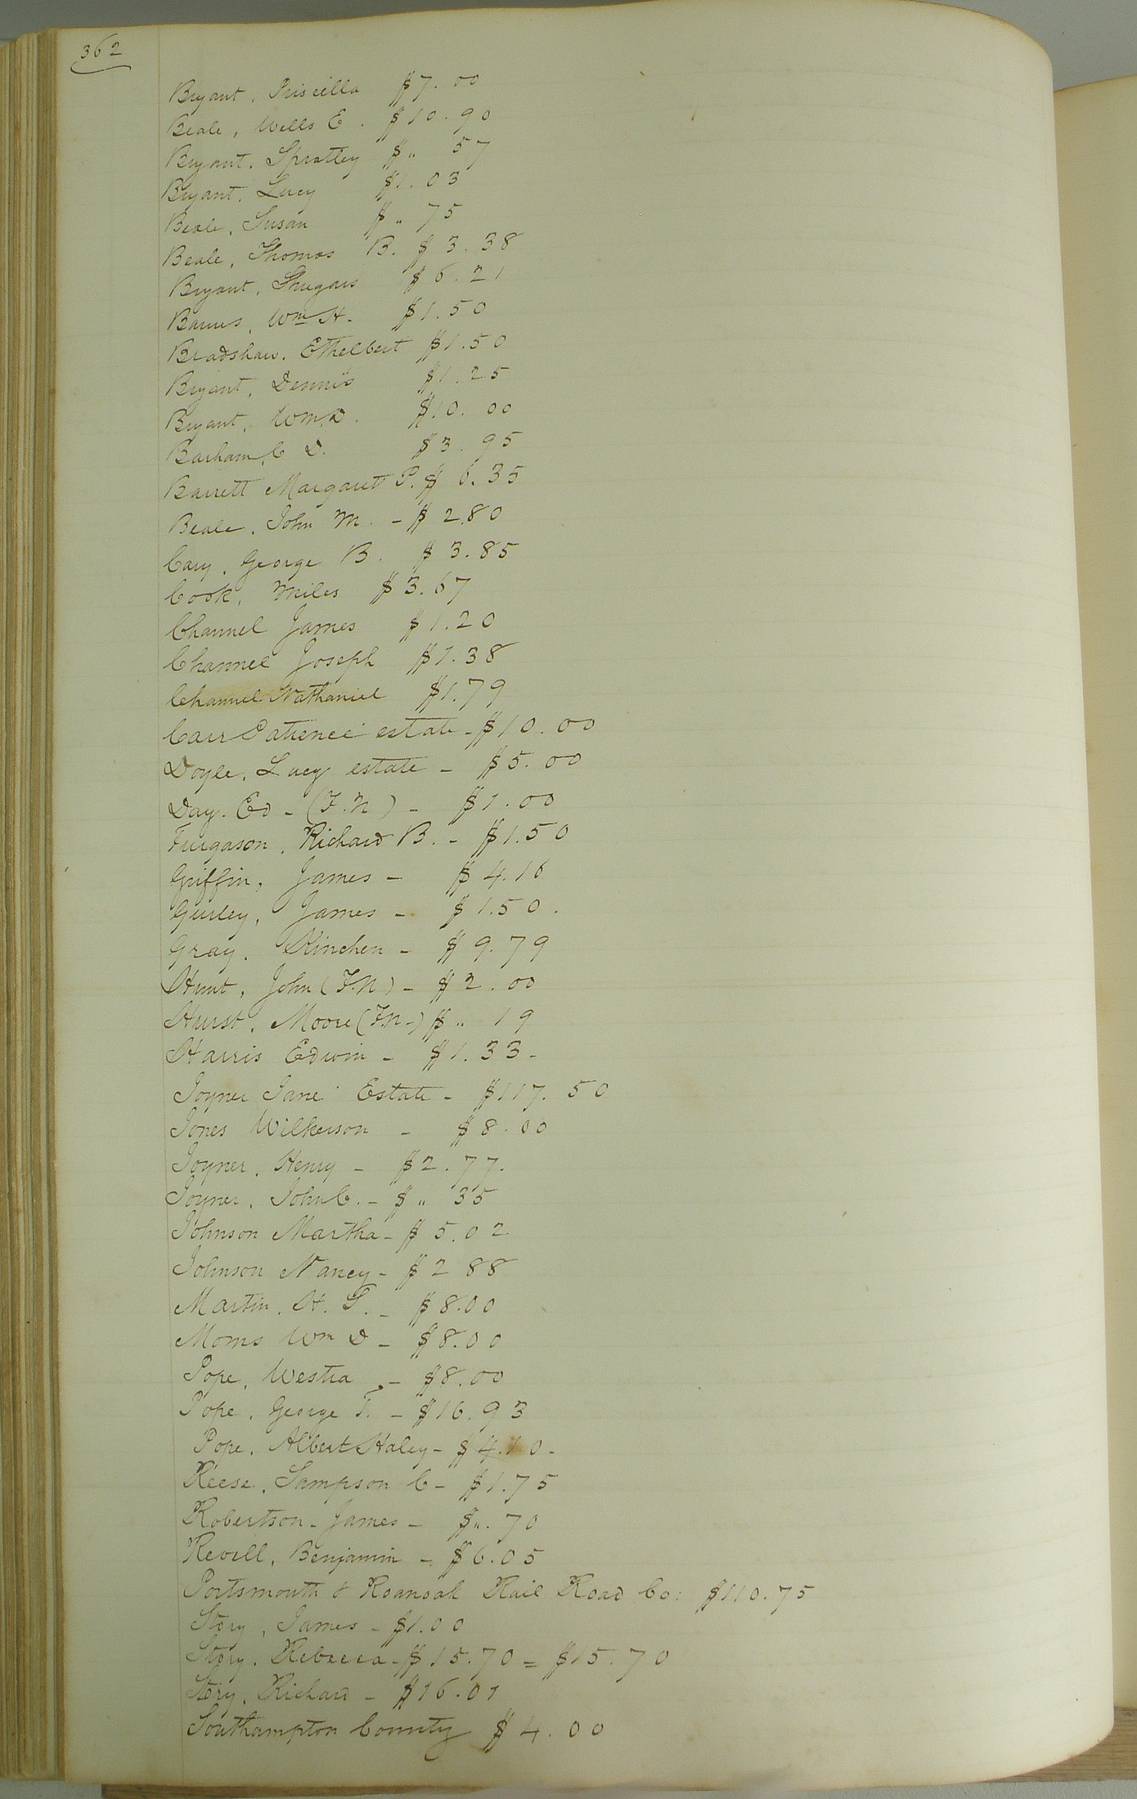 362
Bryant, Priscilla $7.00
Beale, Wells E. $10.90
Bryant, Spratley $ „ 57
Bryant, Lucy $1.03
Beale, Susan $ „ 75
Beale, Thomas B. $3.38
Bryant, Shugars $6.21
Barnes, Wm H. $1.50
Bradshaw, Ethelbert $1.50
Bryant, Dennis $1.25
Bryant, Wm D. $10.00
Barham, C D. $3.95
Barrett Margarett P. $6.35
Beale, John M. - $2.80
Cary, George B. $3.85
Cook, Miles $3.67
Channel James $1.20
Channel Joseph $1.38
Channel Nathaniel $1.79
Carr Patience estate - $10.00
Doyle, Lucy estate - $5.00
Day. Ed - (F.N) - $1.00
Furgason, Richard B. - $1.50
Griffin, James - $4.16
Gurley, James - $1.50.
Gray, Kinchen - $9.79
Hunt, John (F.N) - $2.00
Hurst, Moore (F.N-) $ „ 19
Harris Edwin - $1.33-
Joyner Jane Estate - $117.50
Jones Wilkerson - $8.00
Joyner, Henry - $2.77.
Joyner, John C. - $ „ 35
Johnson Martha - $5.02
Johnson Nancy - $2 88
Martin, H. T. - $8.00
Morris Wm D - $8.00
Pope, Westra - $8.00
Pope, George T. - $16.93
Pope, Albert Haley - $4.10-
Reese, Sampson C - $1.75
Robertson - James - $ „. 70
Revell, Benjamin - $6.05
Portsmouth & Roanoak Rail Road Co: $110.75
Story, James - $1.00
Story, Rebecca - $15.70 = $15.70
Story, Richard - $16.01
Southampton County $4.00